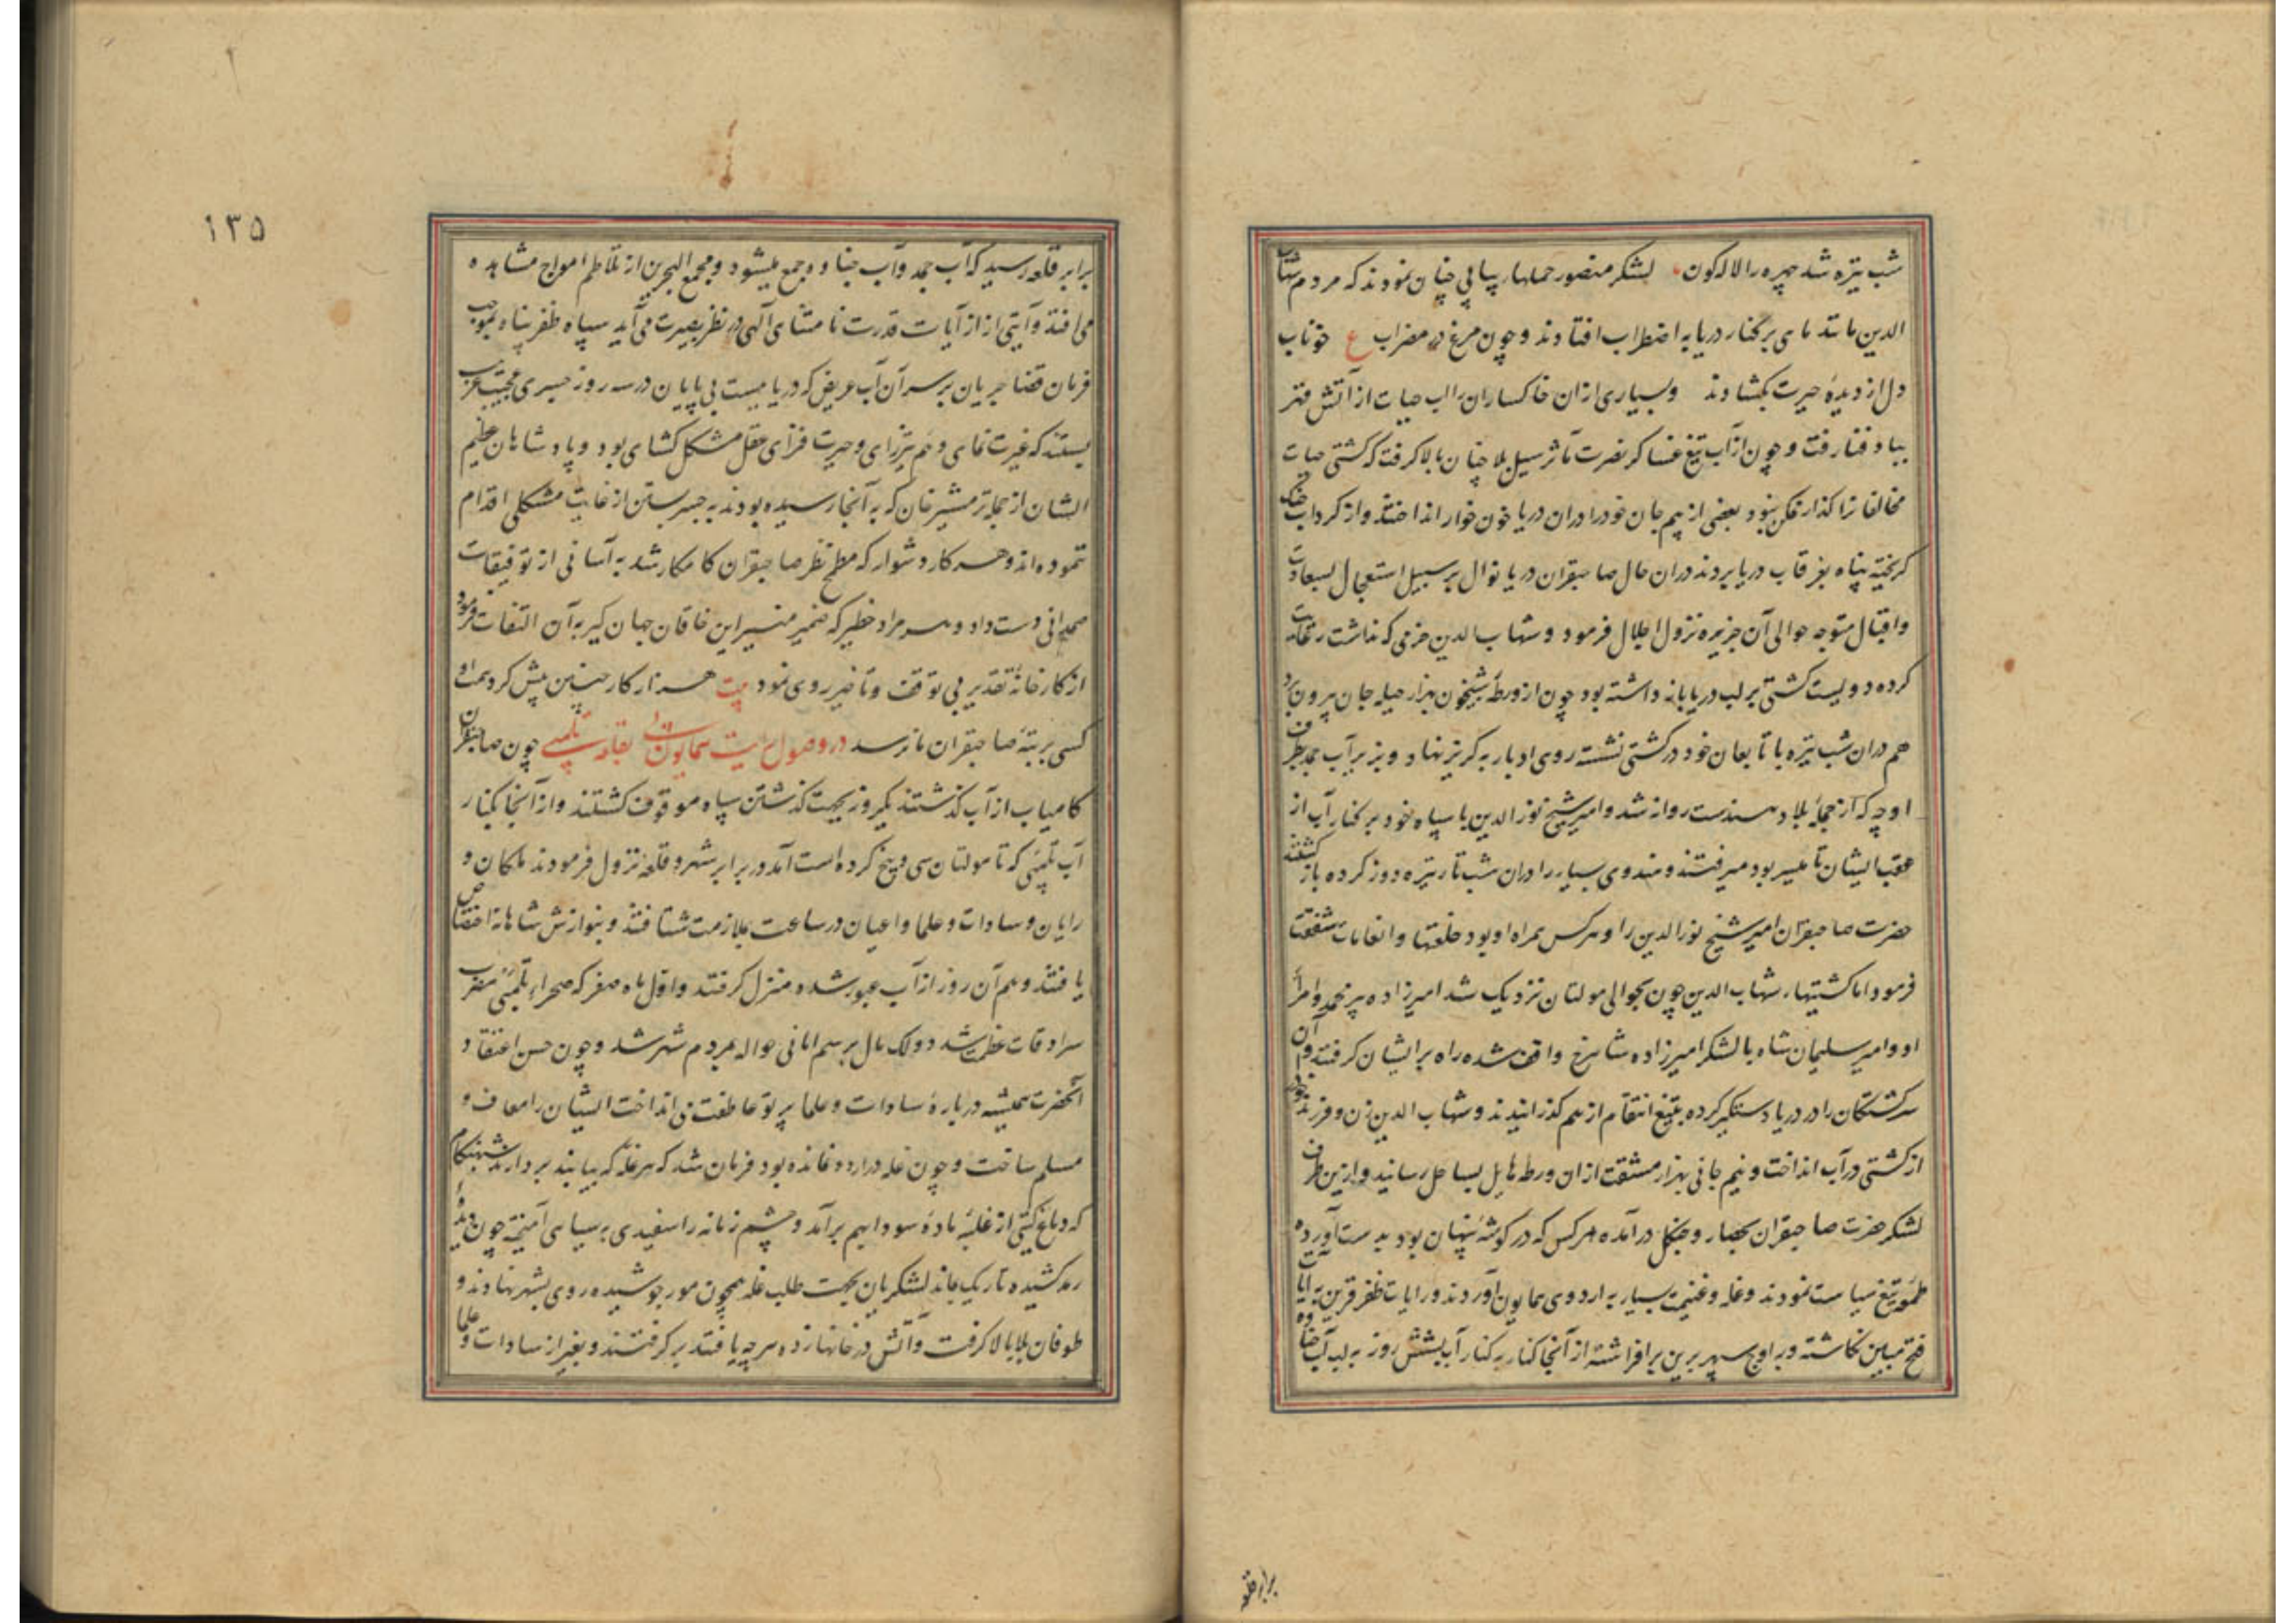 شب تیره شد چهره را لاله کون لشکر منصور حملهاء پیاپی چنان نمودند که مردم شهاب
الدین مانند ماهی بر کنار دریا به اضطراب افتادند و چون مرغ در مضراب ع خوناب
دل از دیدهٔ حیرت بکشادند و بسیاری ازان خاکساران را آب حیات از آتش قهر
بباد فنا رفت و چون از آب تیغ عساکر نصرت مآثر سیل بلا چنان بالا کرفت که کشتی حیات
مخالفانرا کذار ممکن نبود بعضی از بیم جان خود را دران دریا خون خوار انداختند و از کرداب
کریخته پناه بغرقاب دریا بردند دران حال صاحبقران دریا نوال بر سبیل استعجال بسعادت
و اقبال متوجه حوالی آن جزیره نزول اجلال فرمود و شهاب الدین حزمی که نداشت رعایت
کرده دویست کشتی بر لب دریا بازداشته بود چون از ورطهٔ شبیخون بهزار حیله جان بیرون برد
هم دران شب تیره با تابعان خود در کشتی نشسته روی ادبار به کریز نهاد و بزیر آب جمد بطرف
اوچه که از جملهٔ بلاد هندست روانه شد و امیر شیخ نورالدین با سپاه خود بر کنار آب از
عقب ایشان تا میسر بود میرفتند و هندوی بسیار را دران شب تار تیره روز کرده بازکشتند
حضرت صاحبقران امیر شیخ نورالدین را و هرکس همراه او بود خلعتها و انعامات شفقت
فرمود اما کشتیهاء شهاب الدین چون بحوالی مولتان نزدیک شد امیرزاده پیر محمد و امراء
او و امیر سلیمان شاه با لشکر امیرزاده شاهرخ واقف شده راه بر ایشان کرفتند و آن
سرکشتکان را در دریا دستکیر کرده بتیغ انتقام از هم کذرانیدند و شهاب الدین زن و فرزند خود
از کشتی در آب انداخت و نیم جانی بهزار مشقت ازان ورطه هایل بساحل رسانید و ازین طرف
لشکر حضرت صاحبقران بحصار و جنکل درآمده هرکس که در کوشهٔ پنهان بود بدست آورده
طعمهٔ تیغ سیاست نمودند و غله و غنیمت بسیار به اردوی همایون آوردند و رایات ظفر قرین به آیات
فتح مبین نکاشته و بر اوج سپهر برین برافراشته از آنجا کنار به کنار آب بشش روز به لب آب جناوه
برابر قلعه
١٣۵
برابر قلعه رسید که آب جمد و آب جناوه جمع میشود و مجمع البحرین از تلاطم امواج مشاهده
می افتد و آیتی از آیات قدرت نامتناهی الهی در نظر بصیرت می آید سپاه ظفر پناه بموجب
فرمان قضا جریان بر سر آن آب عریض که دریاییست بی پایان در سه روز جسری عجیب غریب
بستند که غیرت نمای وهم تیزرای و حیرت فزای عقل مشکل کشای بود و پادشاهان عظیم
الشان از جمله ترمشیر خان که به آنجا رسیده بودند به جسر بستن از غایت مشکلی اقدام
ننموده اند و هر کار دشوار که مطمح نظر صاحبقران کامکار شد به آسانی از توفیقات
سبحانی دست داد و هر مراد خطیر که ضمیر منیر این خاقان جهان کیر به آن التفات فرمود
از کارخانهٔ تقدیر بی توقف و تأخیر روی نمود بیت هزار کار چنین پیش کرد همت او
کسی برتبهٔ صاحبقران ما نرسد در وصول رایت همایون بقلعه تلمبی چون صاحبقران
کامیاب از آب کذشتند یکروز بجهت کذشتن سپاه موقوف کشتند و از آنجا بکنار
آب تلمبی که تا مولتان سی و پنج کروه است آمد در برابر شهر و قلعه نزول فرمودند ملکان و
رایان و سادات و علما و اعیان در ساعت بملازمت شتافتند و بنوازش شاهانه اختصاص
یافتند و هم آن روز از آب عبور شده منزل کرفتند و اول ماه صفر که صحراء تلمبی مضرب
سرادقات عظمت شد دو لک مال برسم امانی حواله بمردم شهر شد و چون حسن اعتقاد
آنحضرت همیشه دربارهٔ سادات و علما پرتو عاطفت می انداخت ایشان را معاف و
مسلم ساخت و چون غله در اردو نمانده بود فرمان شد که هر غله که بیابند بردارند شبهنکام
که دماغ کیتی از غلبهٔ مادهٔ سودا بهم برآمد و چشم زمانه را سفیدی به سیاهی آمیخته چون دیدهٔ
رمد کشیده تاریک ماند لشکریان بجهت طلب غله همچون مور جوشیده روی بشهر نهادند و
طوفان بلا بالا کرفت و آتش در خانها زده هرچه یافتند برکرفتند و بغیر از سادات و علما